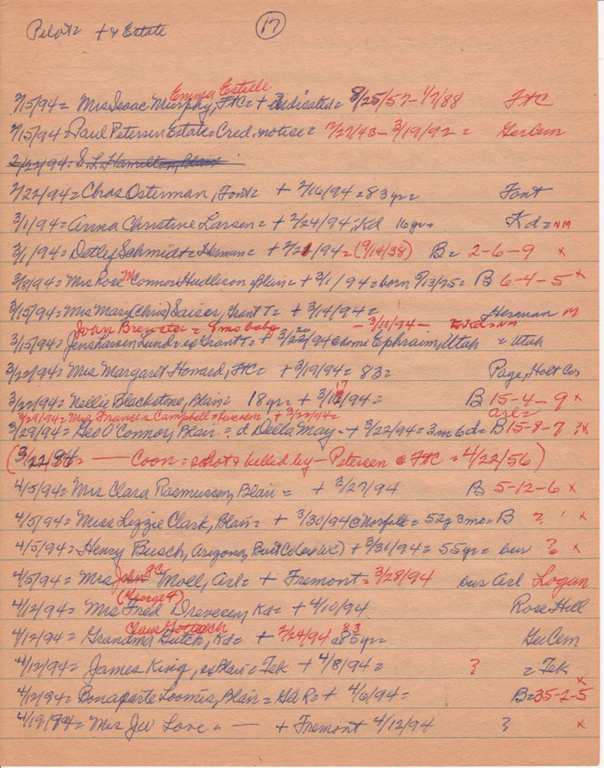 Pilot = + & Estate (17)
Emma Estelle
2/15/94 = Mrs Isaac Murphy, FtC = + 8/25/57 - 1/7/88 FtC
2/15/94 Paul Petersen Estate = Cred. notice = 12/27/43 - 3/19/92 = GerCem
2/22/94 = S. L. Hamilton, Blair
2/22/94 = Chas Osterman, Font = + 2/16/94 = 83 yr = Font
3/1/94 = Anna Christine Larsen = + 2/24/94, Kd 16 yr = Kd = NM
3/1/94 = Detley Schmidt = Herman = + 2/21/94 = (9/14/38) B = 2-6-9 x
3/8/94 = Mrs Rose McConnor Hudleson, Blair = + 3/1/94 = born 9/13/75 = B 6-4-5 x
3/15/94 = Mrs Mary (Chris) Saiser, Grant T = + 3/14/94 = Herman M
Joan Brewster = 9 mo baby - 3/11/94 - Kd = NM
3/15/94 = Lund = Grant T = + 3/22/94 @ home Ephraim, Utah = Utah
3/22/94 = Mrs Margaret Honard, FtC = + 3/19/94 = 83 = Page, Holt Co
3/22/94 = Nellie Blackstone, Blair = 18 yr = + 3/17/94 = B 15-4-9 x
3/29/94 = Mrs Frances Campbell = + 3/22/94 = Arl =
3/29/94 = Geo O'Connor, Blair = d Della May - + 3/22/94 = 3m 6d = B 15-8-7 ?x
(3/22/94 = — Coon = shot & killed by - Petersen @ FtC = 4/22/56)
4/5/94 = Mrs Clara Rasmussen, Blair = + 3/27/94 B 5-12-6 x
4/5/94 = Miss Lizzie Clark, Blair = + 3/30/94 @ Norfolk = 52y 3mo = B ? x
4/5/94 = Henry Busch, Arizona, Burt Co + 3/31/94 = 55 yr = bur ? x
4/5/94 = Mrs John Moll, Arl = + Fremont = 3/28/94 bur Arl Logan
(George?)
4/12/94 = Mrs Fred Drevecen, Kd = + 4/10/94 Rose Hill
Claus Gottsch 83
4/12/94 = Grandma Gutch, Kd = + 2/24/94 = 85 yr = GerCem
4/12/94 = James King, ex Blair = Tek + 4/8/94 = ? = Tek x
4/12/94 = Bonaparte Loomis, Blair = GAR = + 4/6/94 = B = 35-2-5
4/19/94 = Mrs Jew Love = — + Fremont 4/12/94 ? x